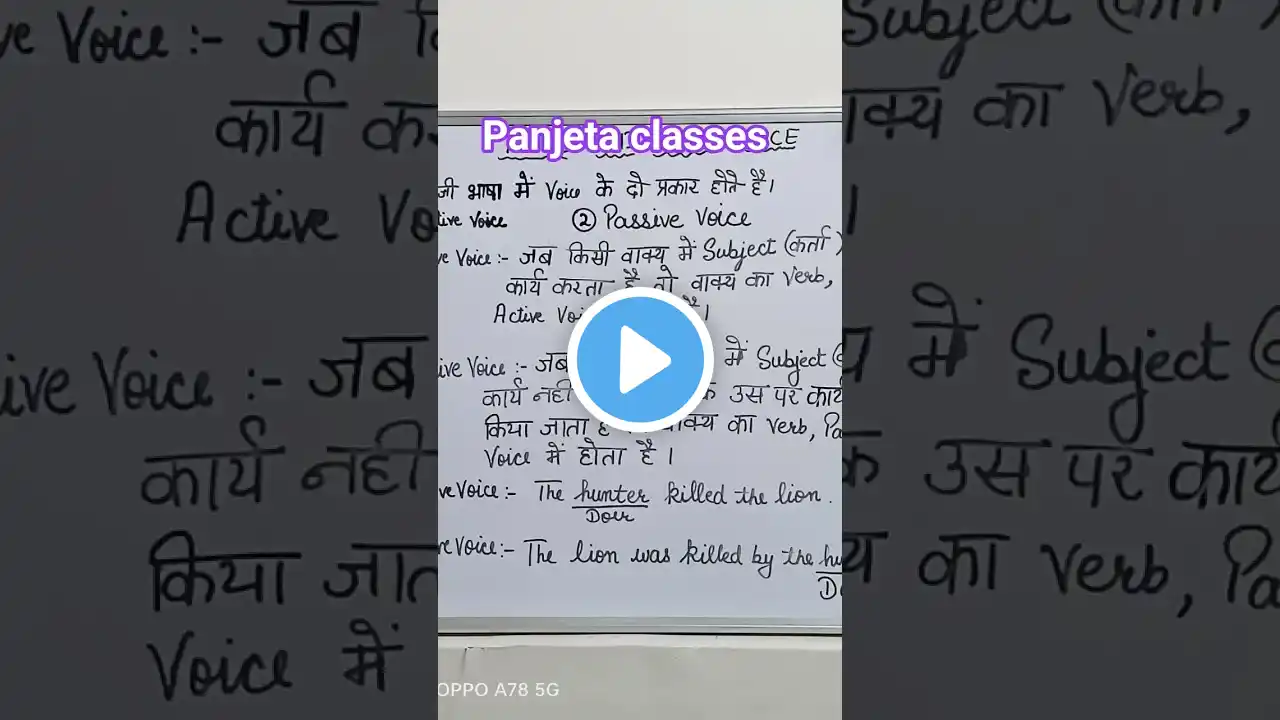 Panjeta classes
CE
जी भाषा में Voice के दो प्रकार होते है।
tive Voice ② Passive Voice
ve Voice :- जब किसी वाक्य में Subject (कर्ता)
कार्य करता है तो वाक्य का Verb,
Active Voi है।
ive Voice :- जब में Subject (
कार्य नही क उस पर कार्य
किया जाता है वाक्य का Verb, Pa
Voice में होता है।
ve Voice :- The hunter killed the lion.
Doer
ve Voice :- The lion was killed by the hu
D
OPPO A78 5G